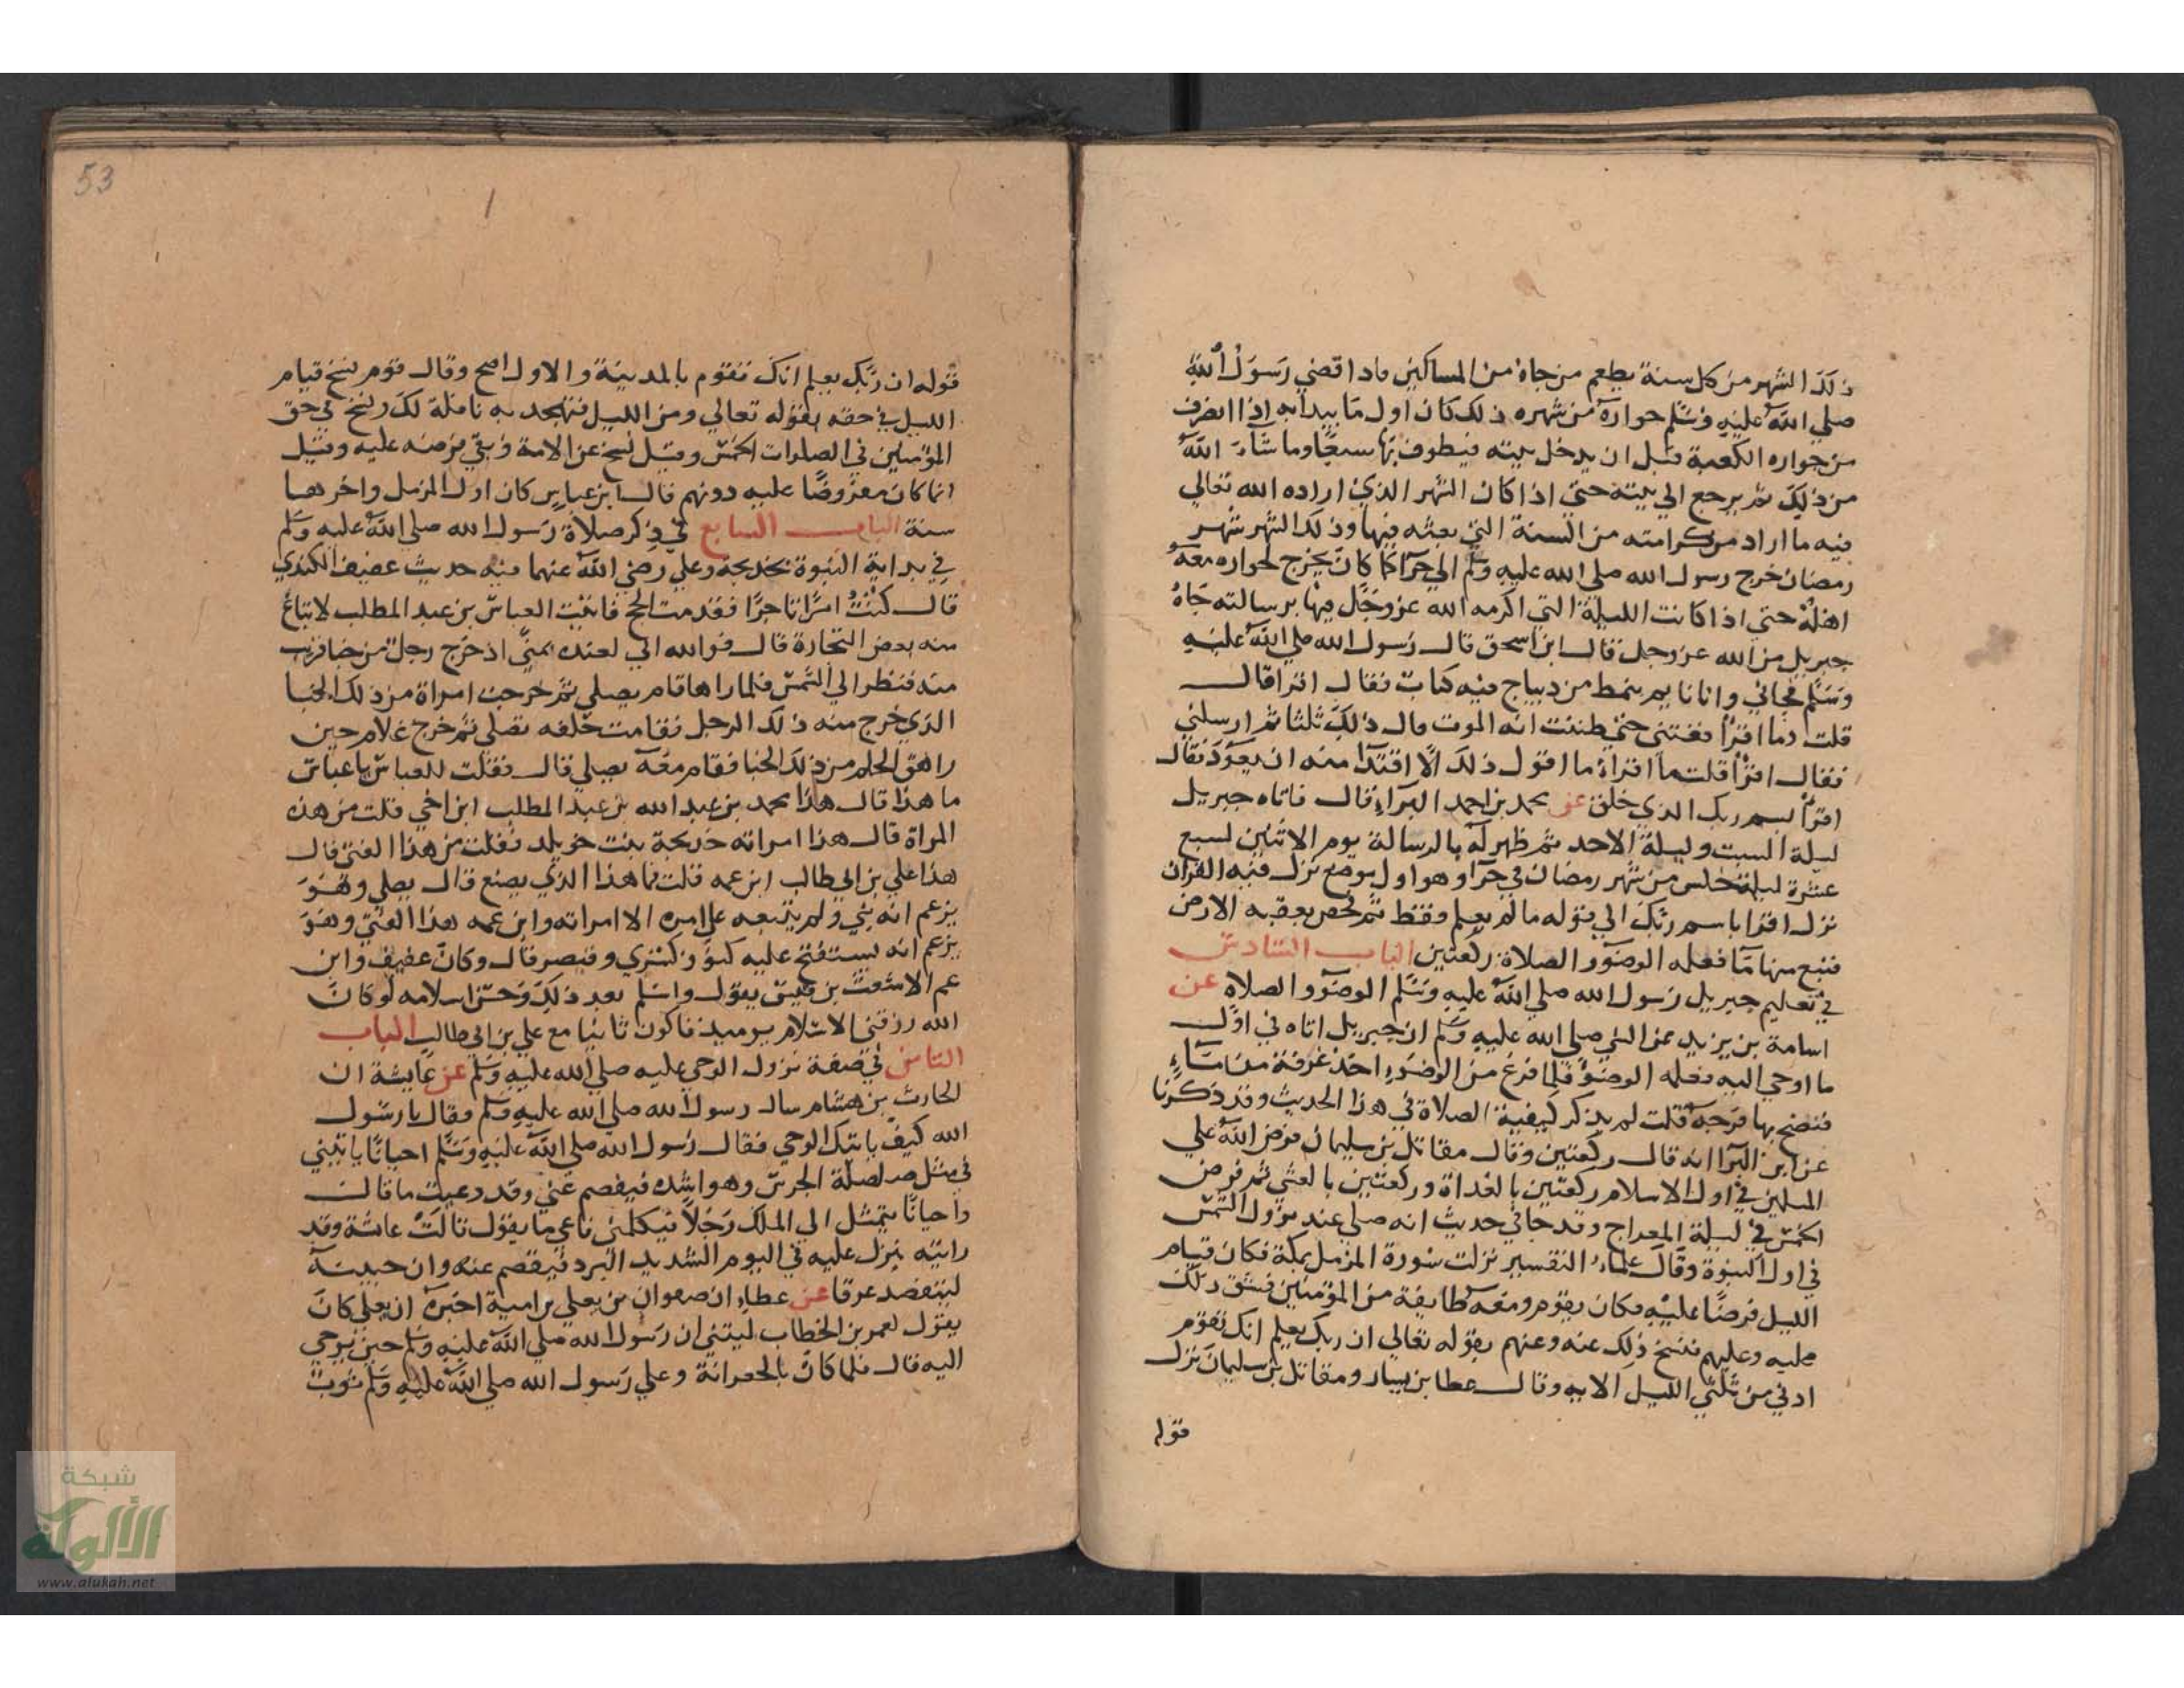 ذلك الشهر من كل سنة يطعم من جاه من المساكين فاذا قضي رسول الله
صلي الله عليه وسلم جواره من شهره ذلك كان اول ما يبدأ به اذا انصرف
من جواره الكعبة قبل ان يدخل بيته فيطوف بها سبعا وما شاء الله
من ذلك ثم يرجع الي بيته حتي اذا كان الشهر الذي اراده الله تعالي
فيه ما اراد من كرامته من السنة التي بعثه فيها وذلك الشهر شهر
رمضان خرج رسول الله صلي الله عليه وسلم الي حرا كما كان يخرج لجواره معه
اهله حتي اذا كانت الليلة التي اكرمه الله عز وجل فيها برسالته جاه
جبريل من الله عز وجل قال ابن اسحق قال رسول الله صلي الله عليه
وسلم فجاني وانا نايم بنمط من ديباج فيه كتاب فقال اقرا قال
قلت وما اقرأ فغتني حتي ظننت انه الموت قال ذلك ثلثا ثم ارسلني
فقال اقرأ قلت ما اقراء ما اقول ذلك الا افتدا منه ان يعود فقال
اقرأ بسم ربك الذي خلق عن محمد بن احمد البراء قال فاتاه جبريل
ليلة السبت وليلة الاحد ثم ظهر له بالرسالة يوم الاثنين لسبع
عشرة ليلة خلس من شهر رمضان في حرا وهو اول موضع نزل فيه القران
نزل اقرا باسم ربك الي قوله ما لم يعلم فقط ثم فحص بعقبه الارض
فنبع منها ما فعلمه الوضوء والصلاة ركعتين الباب السادس
في تعليم جبريل رسول الله صلي الله عليه وسلم الوضوء والصلاة عن
اسامة بن يزيد عن النبي صلي الله عليه وسلم ان جبريل اتاه في اول
ما اوحي اليه فعلمه الوضوء فلما فرغ من الوضوء اخذ غرفة من ماء
فنضح بها فرجه قلت لم يذكر كيفية الصلاة في هذا الحديث وقد ذكرنا
عن ابن البرا انه قال ركعتين وقال مقاتل بن سليمان فرض الله علي
المسلمين في اول الاسلام ركعتين بالغداة وركعتين بالعشي ثم فرض
الخمس في ليلة المعراج وقد جا في حديث انه صلي عند زوال الشمس
في اول النبوة وقال علماء التفسير نزلت سورة المزمل بمكة فكان قيام
الليل فرضا عليه فكان يقوم ومعه طايفة من المؤمنين فشق ذلك
عليه وعليهم فنسخ ذلك عنه وعنهم بقوله تعالي ان ربك يعلم انك تقوم
ادني من ثلثي الليل الايه وقال عطا بن يسار ومقاتل بن سليمان نزل
قوله
53
قوله ان ربك يعلم انك تقوم بالمدينة والاول اصح وقال قوم نسخ قيام
الليل في حقه بقوله تعالي ومن الليل فتهجد به نافلة لك ونسخ في حق
المؤمنين في الصلوات الخمس وقيل نسخ عن الامة وبقي فرضه عليه وقيل
انما كان مفروضا عليه دونهم قال ابن عباس كان اول المزمل واخرها
سنة الباب السابع في ذكر صلاة رسول الله صلي الله عليه وسلم
في بداية النبوة بخديجة وعلي رضي الله عنهما فيه حديث عفيف الكندي
قال كنت امرا تاجرا فقدمت الحج فاتيت العباس بن عبد المطلب لابتاع
منه بعض التجارة قال فوالله اني لعنده بمني اذ خرج رجل من خبا قريب
منه فنظر الي الشمس فلما راها قام يصلي ثم خرجت امراة من ذلك الخبا
الذي خرج منه ذلك الرجل فقامت خلفه تصلي ثم خرج غلام حين
راهق الحلم من ذلك الخبا فقام معه يصلي قال فقلت للعباس يا عباس
ما هذا قال هذا محمد بن عبد الله بن عبد المطلب ابن اخي قلت من هذه
المراة قال هذا امراته خديجة بنت خويلد فقلت من هذا الفتي قال
هذا علي بن ابي طالب ابن عمه قلت فما هذا الذي يصنع قال يصلي وهو
يزعم انه نبي ولم يتبعه علي امره الا امراته وابن عمه هذا الفتي وهو
يزعم انه يستفتح عليه كنوز كسري وقيصر قال وكان عفيف وابن
عم الاشعث بن قيس يقول واسلم بعد ذلك وحسن اسلامه لو كان
الله رزقني الاسلام يوميذ فاكون ثانيا مع علي بن ابي طالب الباب
الثامن في صفة نزول الوحي عليه صلي الله عليه وسلم عن عايشة ان
الحارث بن هشام سال رسول الله صلي الله عليه وسلم فقال يا رسول
الله كيف ياتيك الوحي فقال رسول الله صلي الله عليه وسلم احيانا ياتيني
في مثل صلصلة الجرس وهو اشده فيفصم عني وقد وعيت ما قال
واحيانا يتمثل الي الملك رجلا فيكلمني فاعي ما يقول قالت عائشة وقد
رايته ينزل عليه في اليوم الشديد البرد فيفصم عنه وان جبينه
ليتفصد عرقا عن عطاء ان صفوان بن يعلي بن امية اخبره ان يعلي كان
يقول لعمر بن الخطاب ليتني ان رسول الله صلي الله عليه وسلم حين يوحي
اليه قال فلما كان بالجعرانة وعلي رسول الله صلي الله عليه وسلم ثوب
شبكة
الألوكة
www.alukah.net